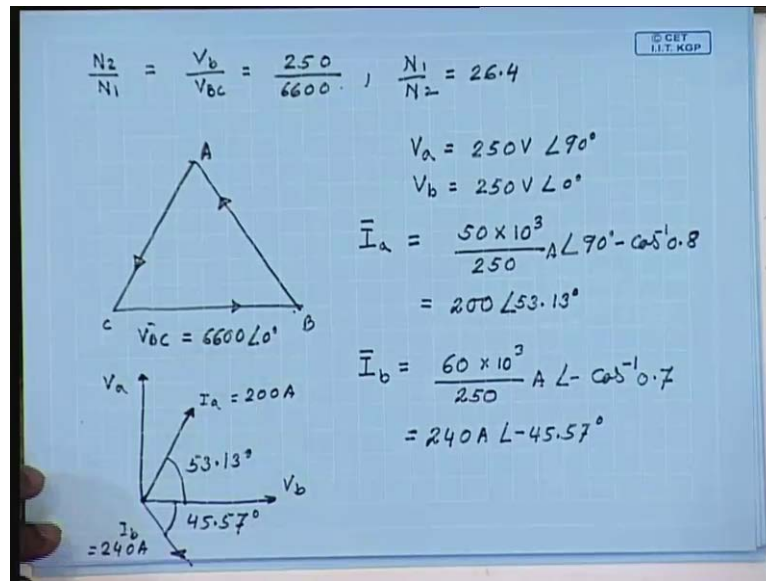 © CET
I.I.T. KGP
N2/N1 = Vb/VBC = 250/6600 , N1/N2 = 26.4
Va = 250V ∠90°
Vb = 250V ∠0°
A
C
B
V̄BC = 6600∠0°
Īa = 50 × 10³/250 A∠90° - cos⁻¹0.8
= 200 ∠53.13°
Īb = 60 × 10³/250 A ∠- cos⁻¹0.7
= 240A ∠-45.57°
Va
Ia = 200A
53.13°
Vb
45.57°
Ib
=240A